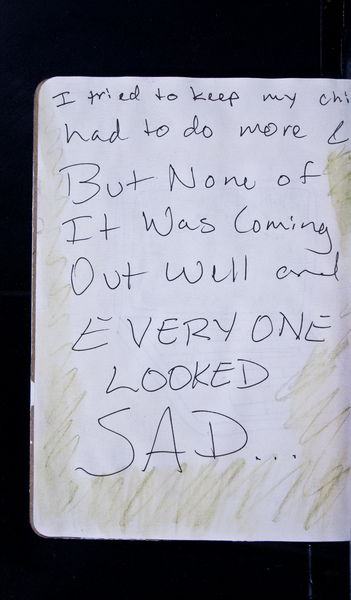 I tried to keep my chi
had to do more &
But None of
It Was Coming
Out Well and
EVERYONE
LOOKED
SAD...